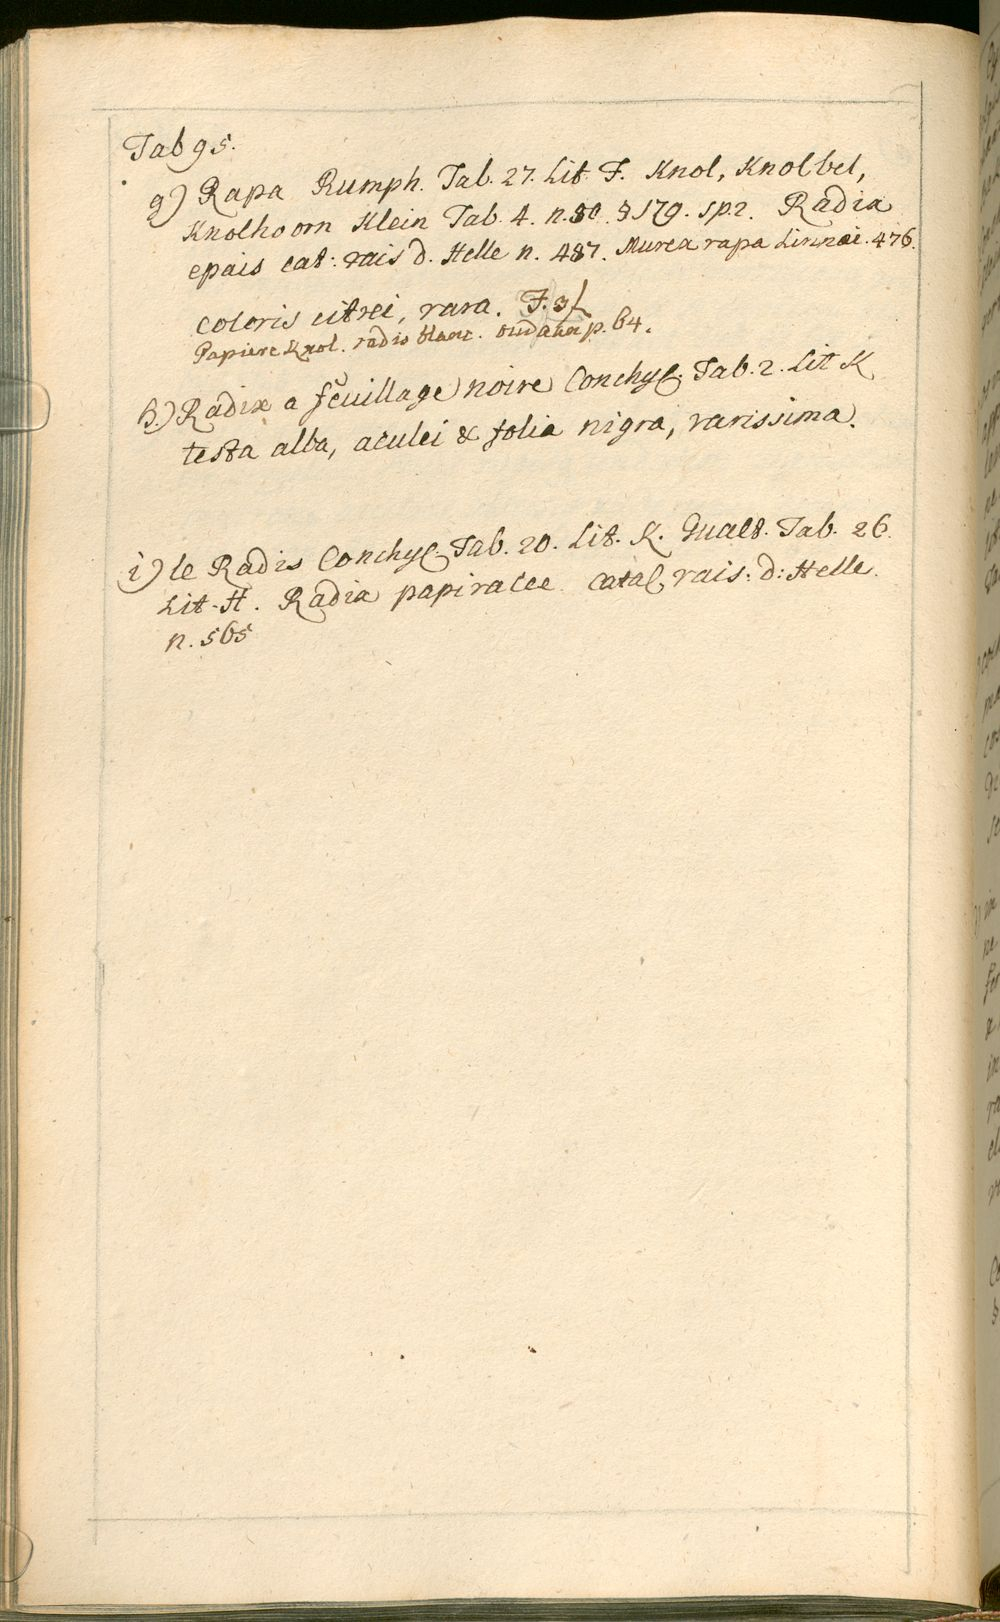 Tab 95.
g) Rapa Rumph. Tab. 27. Lit. F. Knol, Knolbel,
Knolhoorn Klein Tab. 4. n. 80. § 179. sp. 2. Radix
epais cat: rais d. Helle n. 487. Murex rapa Linnæi. 476.
coloris citrei, rara. F. 3f
Papiere Knol. radis blanc. oudaan p. 64.
h.) Radix a feuillage noire Conchyl. Tab. 2. Lit K
testa alba, aculei & folia nigra, rarissima.
i) le Radis Conchyl. Tab. 20. Lit. K. Gualt. Tab. 26.
Lit. H. Radix papiracee catal. rais: d: Helle.
n. 565